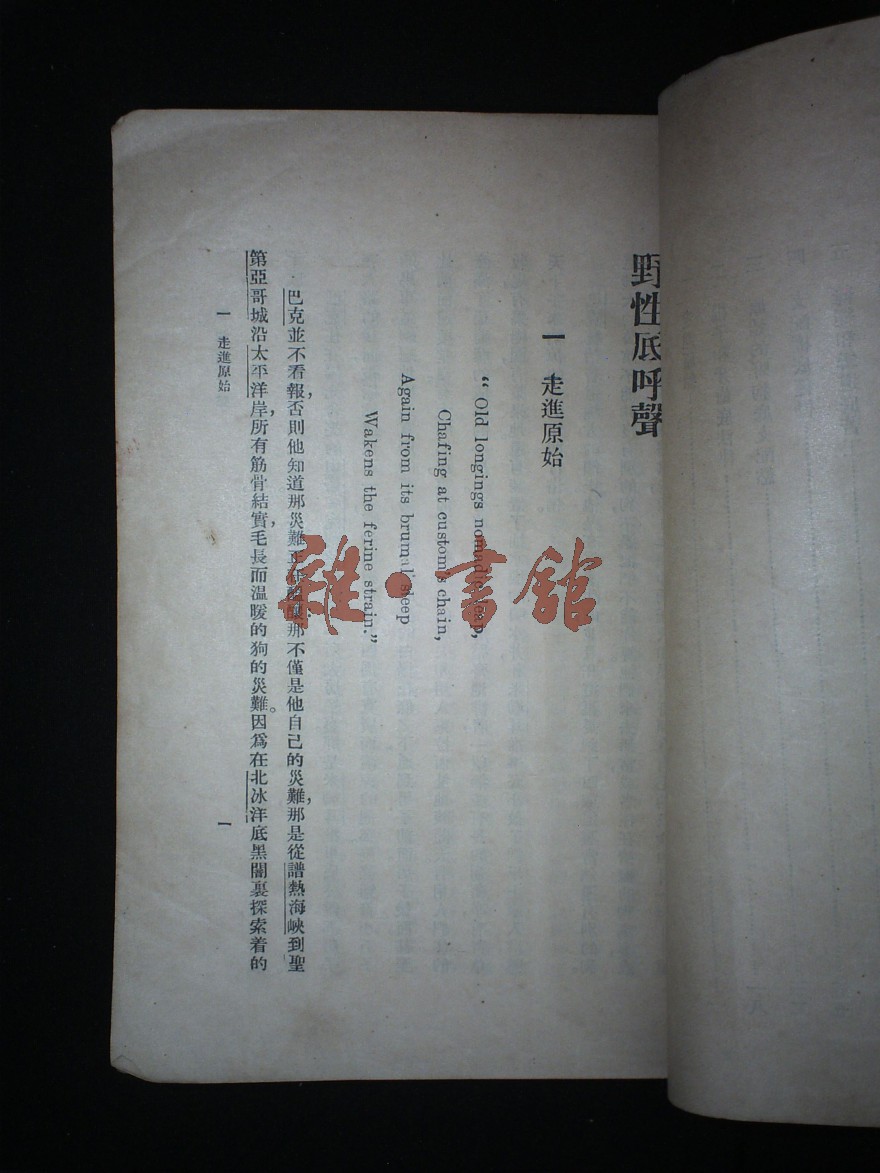 野性底呼聲
一 走進原始
“Old longings nomadic leap,
Chafing at custom's chain,
Again from its brumal sleep
Wakens the ferine strain.”
巴克並不看報，否則他知道那災難正在醞釀：那不僅是他自己的災難，那是從譜熱海峽到聖
第亞哥城沿太平洋岸，所有筋骨結實，毛長而溫暖的狗的災難。因為在北冰洋底黑闇裏探索着的
一 走進原始
一
雜·書館